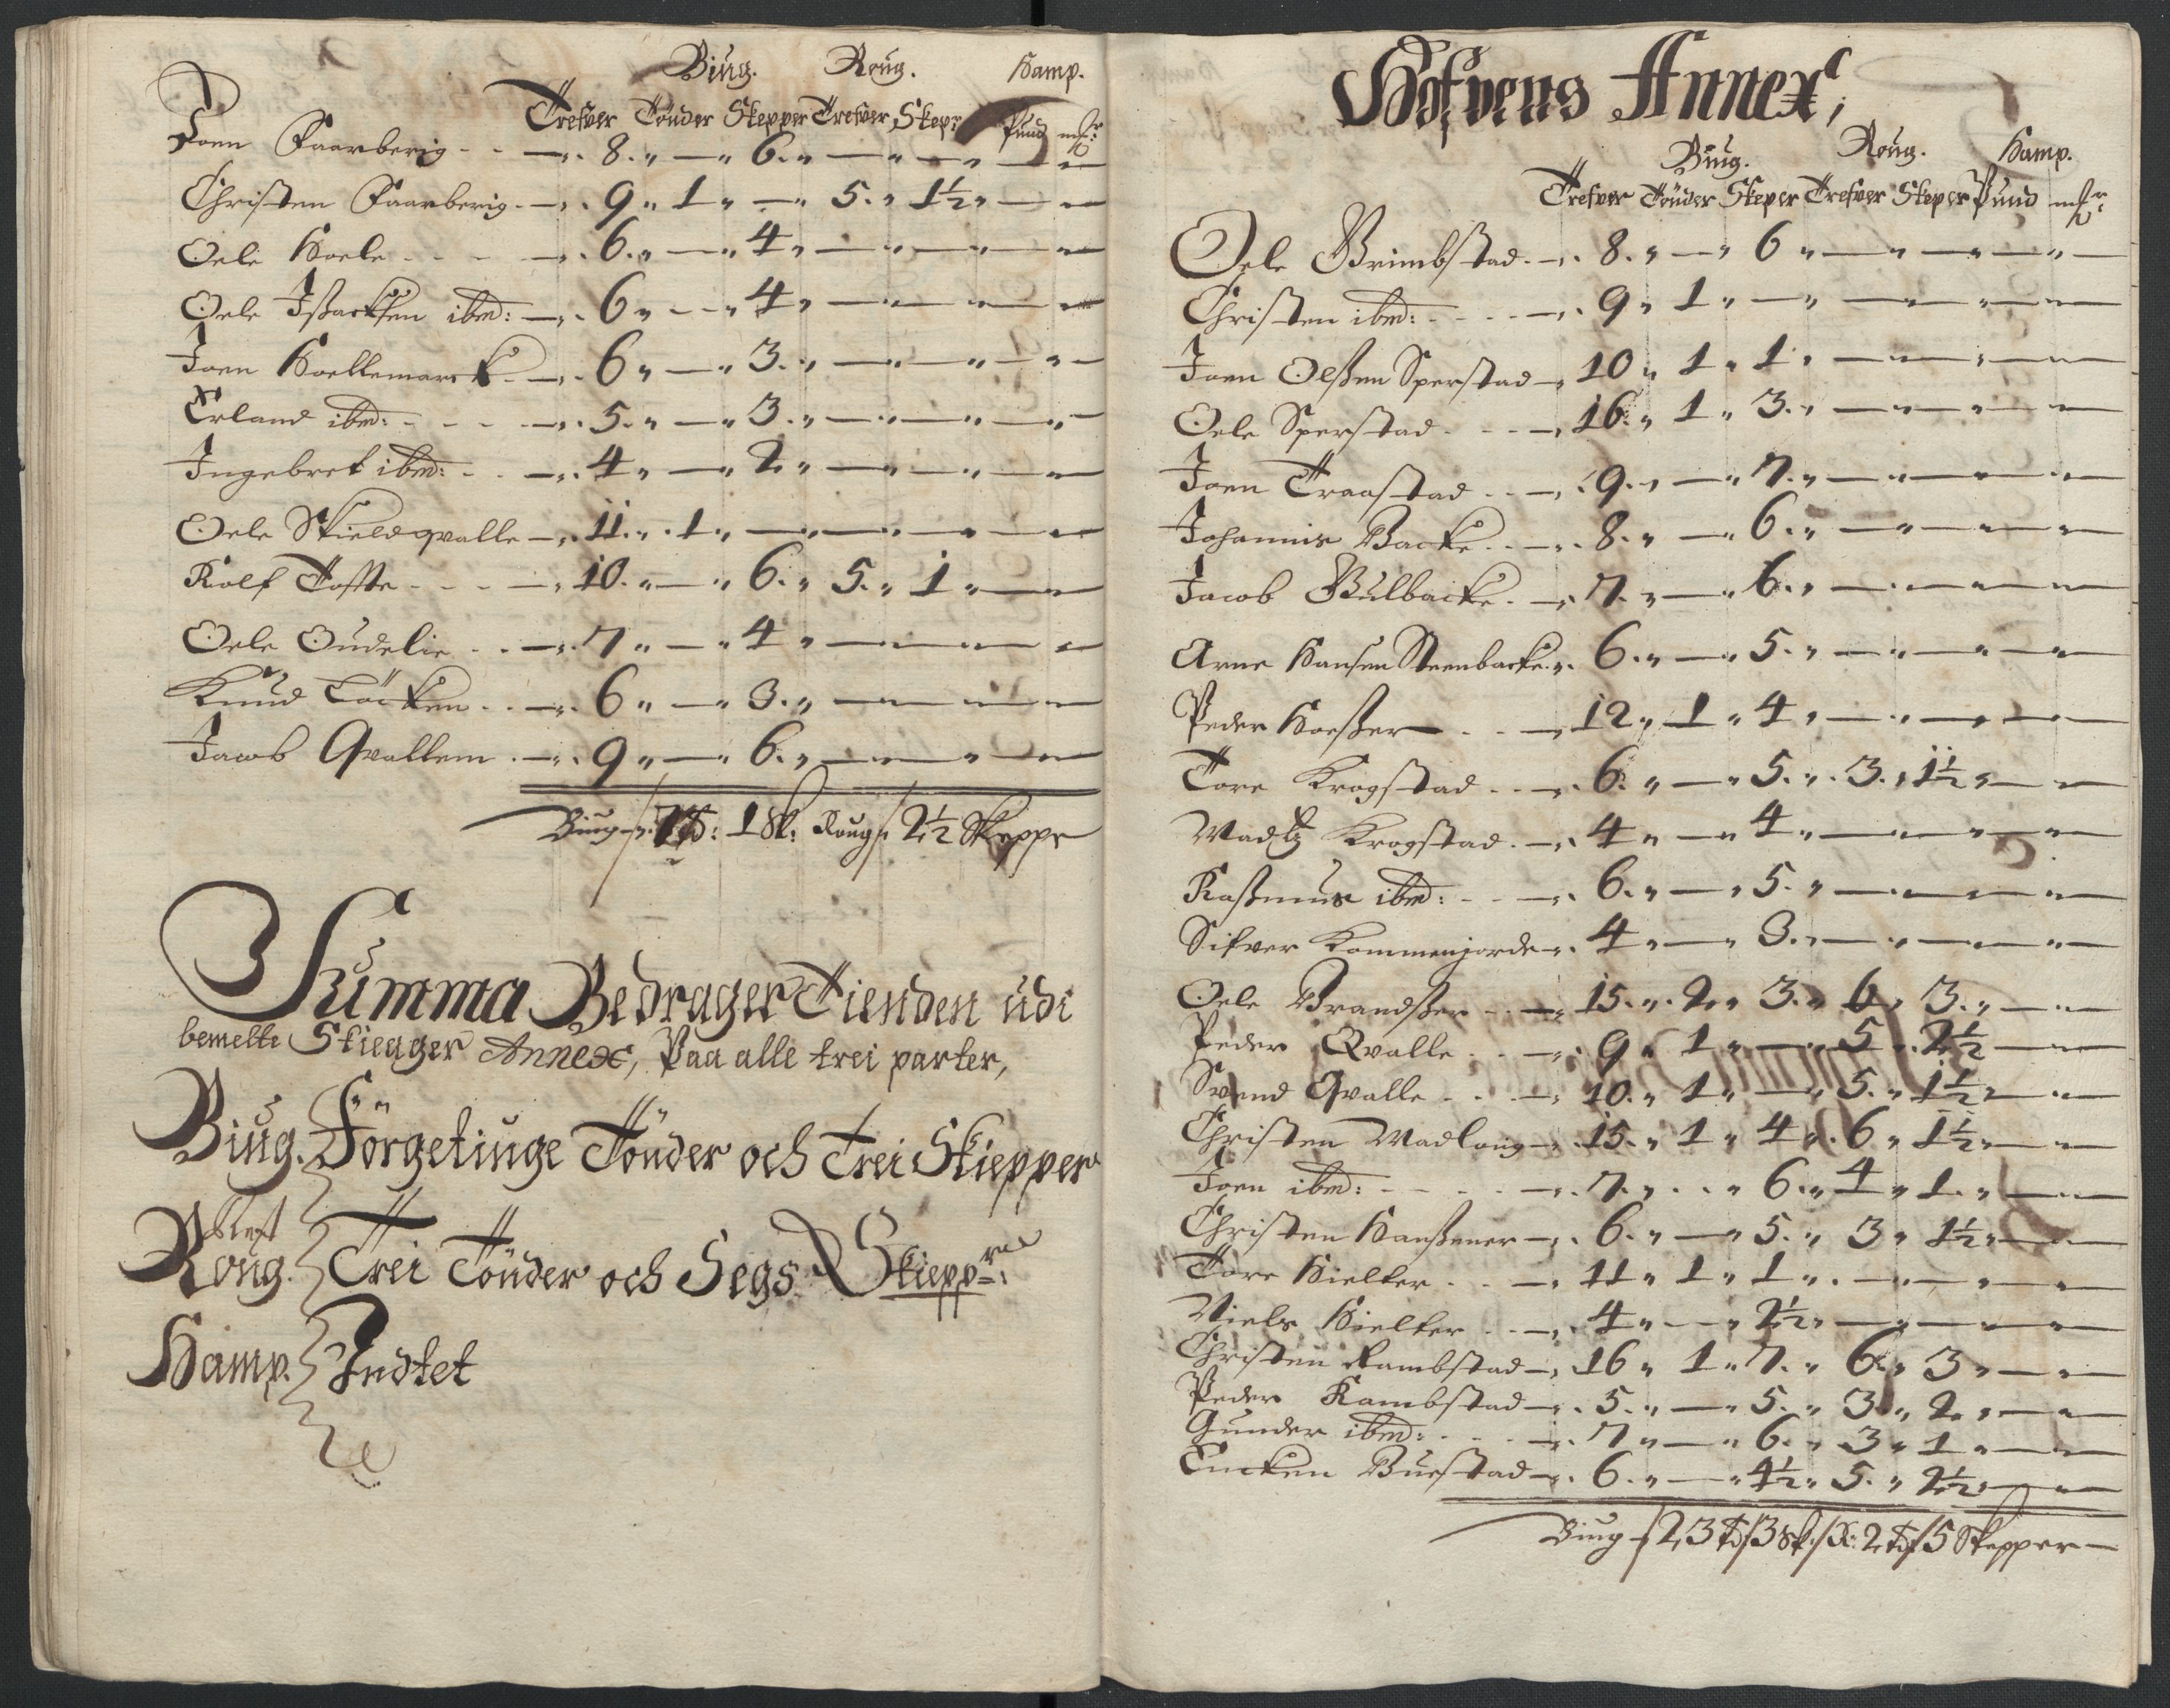 Biug. Roug. Hamp.
Trefver Tönder Skepper Trefver Skeper Pund mkr:
Joen Faarberig - - 8. " — " 6. " — " — " — " —
Christen Faarberig - 9 " 1 " — " 5. " 1½ " — " —
Oele Hoele - - - 6. " — " 4 " — " — " — " —
Oele Ißacksen ibm: — 6 " — " 4 " — " — " — " —
Joen Hoellemarck - 6 " — " 3. " — " — " — " —
Erland ibm: - - - 5. " — " 3. " — " — " — " —
Ingebret ibm: - - 4 " — " 2 " — " — " — " —
Oele Skieldqvalle — 11. " 1 " — " — " — " — " —
Rolf Tofte - - - 10. " — " 6. " 5. " 1 " — " —
Oele Oudelie - - 7 " — " 4 " — " — " — " —
Knud Löcken - - 6 " — " 3. " — " — " — " —
Jacob Qvallem - 9 " — " 6. " — " — " — " —
Biug - / td: 1 Sk: Roug / 2½ Skeppe
Summa Bedrager Tienden udi
bemelte Skieager Annex, Paa alle trei parter,
Biug. Förgetiuge Tönder och Trei Skiepper
Blest
Roug. Trei Tönder och Segs Skieppr:
Hamp. Indtet
Hofvens Annex,
Biug. Roug. Hamp.
Trefver Tönder Skeper Trefver Skeper Pund mkr:
Oele Grimbstad - 8. " — " 6 " — " — " — " —
Christen ibm: - - - 9 " 1 " — " — " — " — " —
Joen Olßen Sperstad — 10 " 1 " 1 " — " — " — " —
Oele Sperstad - - - 16. " 1 " 3. " — " — " — " —
Joen Traastad - - 9. " — " 7. " — " — " — " —
Johannis Backe - - 8. " — " 6. " — " — " — " —
Jacob Gulbacke - 7. " — " 6. " — " — " — " —
Arne Hansen Steenbacke 6. " — " 5. " — " — " — " —
Peder Hoeßer - - 12 " 1 " 4 " — " — " — " —
Tore Krogstad - - 6. " — " 5. " 3. " 1½ " — " —
Madtz Krogstad - 4 " — " 4 " — " — " — " —
Raßmus ibm: - - 6. " — " 5. " — " — " — " —
Sifver Kommenjorde 4 " — " 3. " — " — " — " —
Oele Brandßer - - 15. " 2 " 3. " 6 " 3. " — " —
Peder Qvalle - - 9 " 1 " — " 5 " 2½ — " —
Svend Qvalle - - - 10. " 1 " — " 5. " 1½ " — " —
Christen Madlong - 15. " 1 " 4 " 6 " 1½ " — " —
Joen ibm: - - - 7. " - " 6. " 4 " 1. " — " —
Christen Hanßener - 6. " — " 5. " 3 " 1½ " — " —
Tore Kielter - - 11 " 1 " 1 " — " — " — " —
Niels Kielter - - 4 " — " 2½ " — " — " — " —
Christen Rambstad - 16 " 1 " 7. " 6. " 3 " — " —
Peder Rambstad - 5. " — " 5. " 3. " 2 " — " —
Gunder ibm: - - - 7 " — " 6. " 3 " 1 " — " —
Encken Buestad - 6. " — " 4½ " 5. " 2½ " — " —
Biug - / 23 td / 3 Sk: / R: 2 td / 5 Skepper —